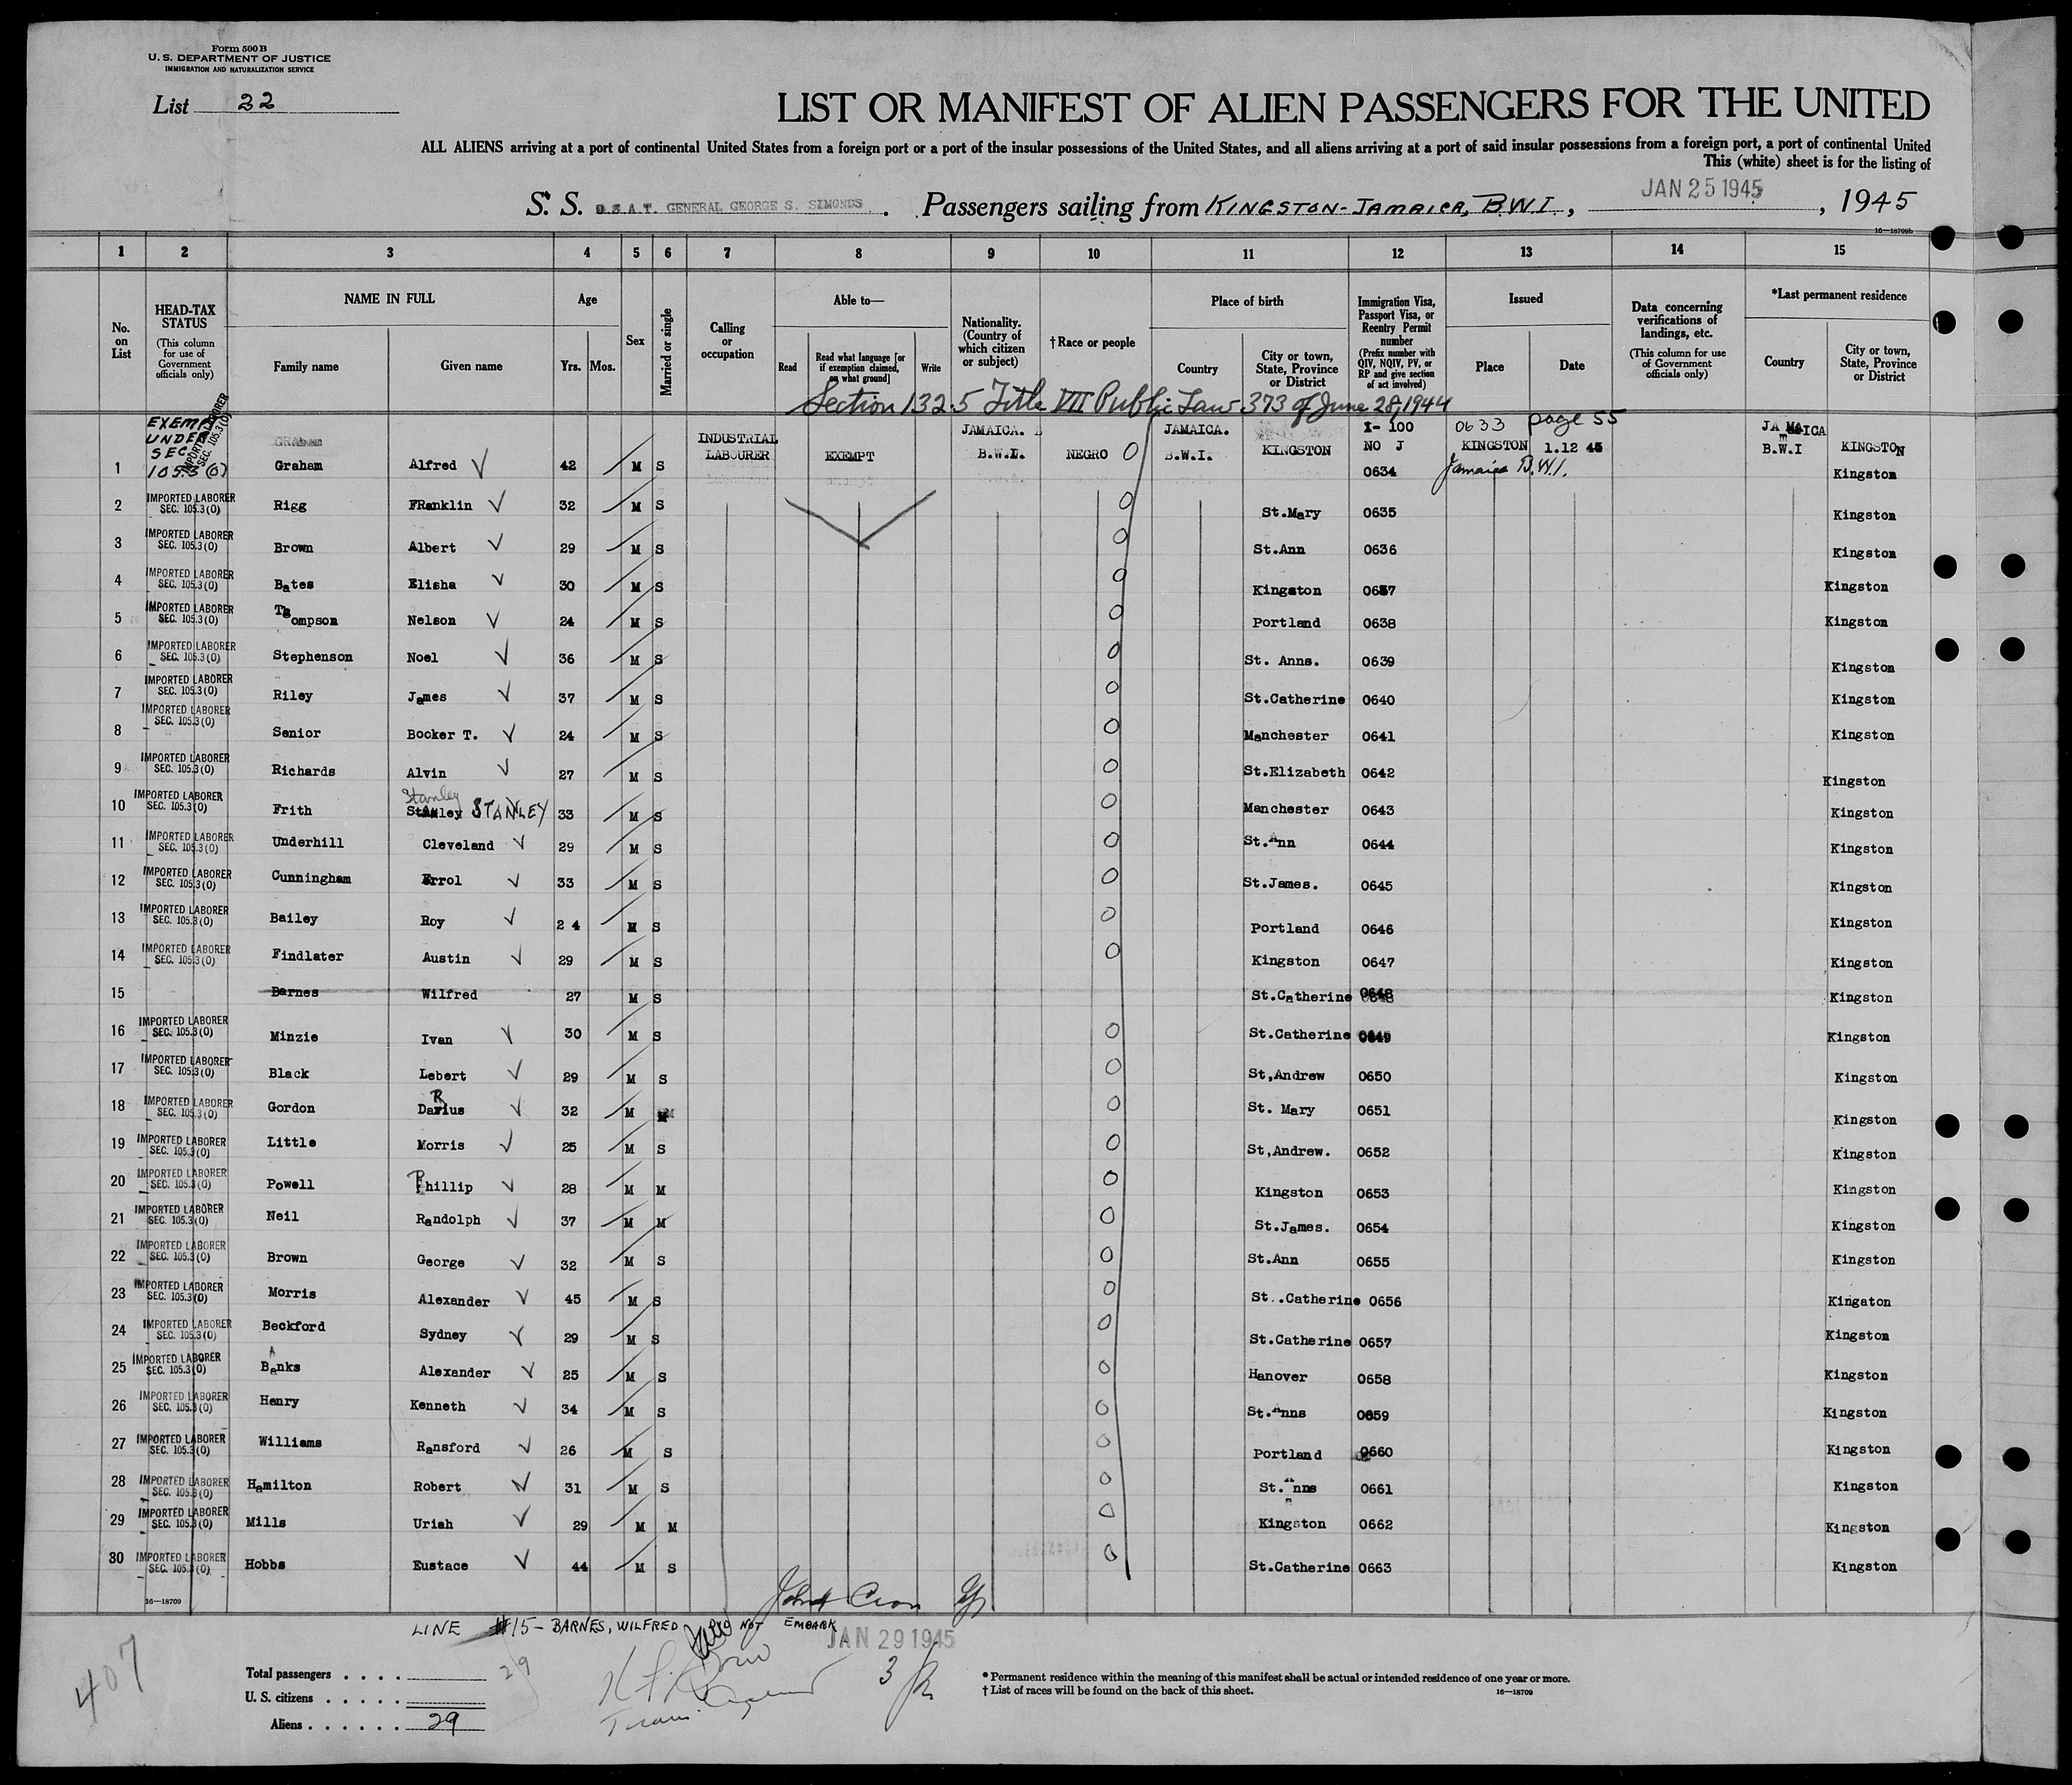 Form 500 B
U. S. DEPARTMENT OF JUSTICE
IMMIGRATION AND NATURALIZATION SERVICE
List 22
LIST OR MANIFEST OF ALIEN PASSENGERS FOR THE UNITED
ALL ALIENS arriving at a port of continental United States from a foreign port or a port of the insular possessions of the United States, and all aliens arriving at a port of said insular possessions from a foreign port, a port of continental United
This (white) sheet is for the listing of
S. S. U.S.A.T. GENERAL GEORGE S. SIMONDS . Passengers sailing from KINGSTON-JAMAICA, B.W.I., JAN 25 1945, 1945
16—18709b
1 2 3 4 5 6 7 8 9 10 11 12 13 14 15
No. on List
HEAD-TAX STATUS (This column for use of Government officials only)
NAME IN FULL Family name Given name
Age Yrs. Mos.
Sex
Married or single
Calling or occupation
Able to— Read Read what language [or if exemption claimed, on what ground] Write
Nationality. (Country of which citizen or subject)
†Race or people
Place of birth Country City or town, State, Province or District
Immigration Visa, Passport Visa, or Reentry Permit number (Prefix number with QIV, NQIV, PV, or RP and give section of act involved)
Issued Place Date
Data concerning verifications of landings, etc. (This column for use of Government officials only)
*Last permanent residence Country City or town, State, Province or District
Section 132.5 Title VII Public Law 373 of June 28, 1944
EXEMPT UNDER SEC. 105.3 (0) IMPORTED LABORER SEC. 105.3(0)
Graham
INDUSTRIAL LABOURER EXEMPT JAMAICA. B.W.I. NEGRO O JAMAICA. B.W.I. KINGSTON I- 100 NO J 0633 page 55 KINGSTON 1.12 45 Jamaica B.W.I. JAMAICA B.W.I KINGSTON
1 Graham Alfred 42 M S 0634 Kingston
2 IMPORTED LABORER SEC. 105.3(0) Rigg FRanklin 32 M S O St.Mary 0635 Kingston
3 IMPORTED LABORER SEC. 105.3(0) Brown Albert 29 M S O St.Ann 0636 Kingston
4 IMPORTED LABORER SEC. 105.3(0) Bates Elisha 30 M S O Kingston 0637 Kingston
5 IMPORTED LABORER SEC. 105.3(0) Thompson Nelson 24 M S O Portland 0638 Kingston
6 IMPORTED LABORER SEC. 105.3(0) Stephenson Noel 36 M S O St. Anns. 0639 Kingston
7 IMPORTED LABORER SEC. 105.3(0) Riley James 37 M S O St.Catherine 0640 Kingston
8 IMPORTED LABORER SEC. 105.3(0) Senior Booker T. 24 M S O Manchester 0641 Kingston
9 IMPORTED LABORER SEC. 105.3(0) Richards Alvin 27 M S O St.Elizabeth 0642 Kingston
10 IMPORTED LABORER SEC. 105.3(0) Frith Stanley Stanley STANLEY 33 M S O Manchester 0643 Kingston
11 IMPORTED LABORER SEC. 105.3(0) Underhill Cleveland 29 M S O St.Ann 0644 Kingston
12 IMPORTED LABORER SEC. 105.3(0) Cunningham Errol 33 M S O St.James. 0645 Kingston
13 IMPORTED LABORER SEC. 105.3(0) Bailey Roy 2 4 M S O Portland 0646 Kingston
14 IMPORTED LABORER SEC. 105.3(0) Findlater Austin 29 M S O Kingston 0647 Kingston
15 Barnes Wilfred 27 M S St.Catherine 0648 Kingston
16 IMPORTED LABORER SEC. 105.3(0) Minzie Ivan 30 M S O St.Catherine 0649 Kingston
17 IMPORTED LABORER SEC. 105.3(0) Black Lebert 29 M S O St,Andrew 0650 Kingston
18 IMPORTED LABORER SEC. 105.3(0) Gordon Darius R 32 M M O St. Mary 0651 Kingston
19 IMPORTED LABORER SEC. 105.3(0) Little Morris 25 M S O St,Andrew. 0652 Kingston
20 IMPORTED LABORER SEC. 105.3(0) Powell Phillip 28 M M O Kingston 0653 Kingston
21 IMPORTED LABORER SEC. 105.3(0) Neil Randolph 37 M M O St.James. 0654 Kingston
22 IMPORTED LABORER SEC. 105.3(0) Brown George 32 M S O St.Ann 0655 Kingston
23 IMPORTED LABORER SEC. 105.3(0) Morris Alexander 45 M S O St..Catherine 0656 Kingston
24 IMPORTED LABORER SEC. 105.3(0) Beckford Sydney 29 M S O St.Catherine 0657 Kingston
25 IMPORTED LABORER SEC. 105.3(0) Banks A Alexander 25 M S O Hanover 0658 Kingston
26 IMPORTED LABORER SEC. 105.3(0) Henry Kenneth 34 M S O St.Anns 0659 Kingston
27 IMPORTED LABORER SEC. 105.3(0) Williams Ransford 26 M S O Portland 0660 Kingston
28 IMPORTED LABORER SEC. 105.3(0) Hamilton Robert 31 M S O St.Anns 0661 Kingston
29 IMPORTED LABORER SEC. 105.3(0) Mills Uriah 29 M M O Kingston 0662 Kingston
30 IMPORTED LABORER SEC. 105.3(0) Hobbs Eustace 44 M S O St.Catherine 0663 Kingston
16—18709
LINE #15 - BARNES, WILFRED DID NOT EMBARK
JAN 29 1945
407
Total passengers . . . . 29
U. S. citizens . . . . .
Aliens . . . . . . 29
3
* Permanent residence within the meaning of this manifest shall be actual or intended residence of one year or more.
† List of races will be found on the back of this sheet.
16—18709